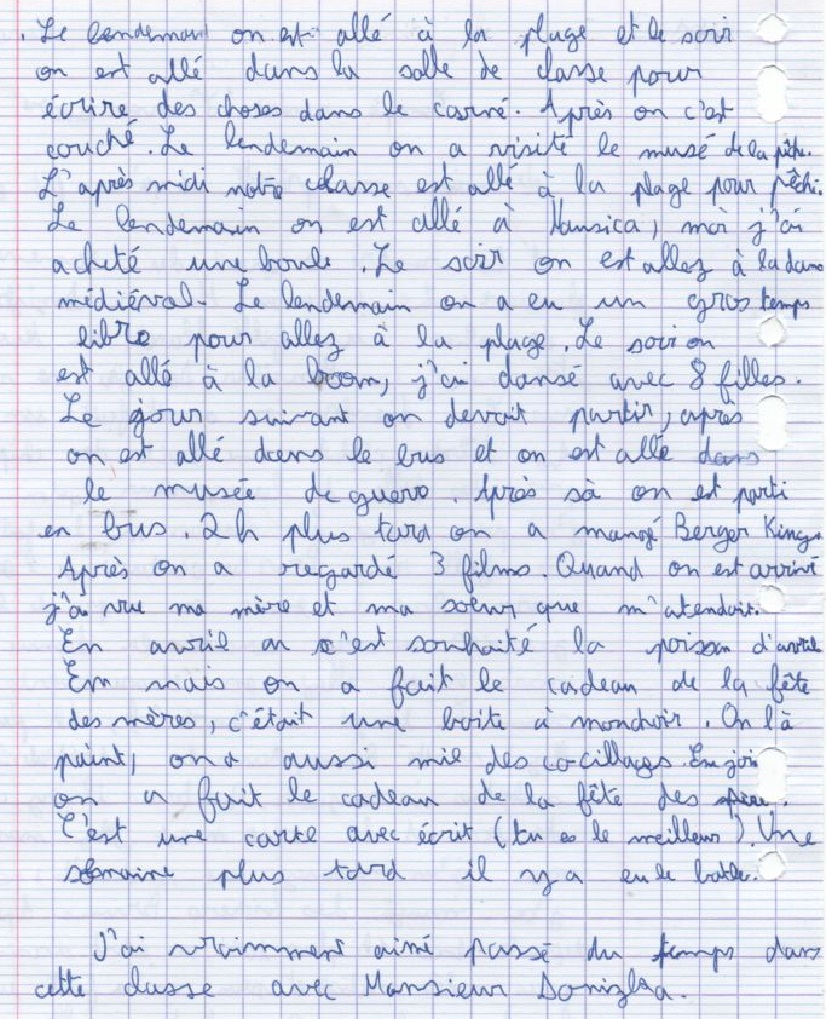 Le lendemain on est allé à la plage et le soir
on est allé dans la salle de classe pour
écrire des choses dans le carné. Après on c'est
couché. Le lendemain on a visité le musé de la pêche.
L'après midi notre classe est allé à la plage pour pêchi.
Le lendemain on est allé à , moi j'ai
acheté une boule. Le soir on est allez à la dans
médiéval. Le lendemain on a eu un gros temps
libre pour allez à la plage. Le soir on
est allé à la boom, j'ai dansé avec 8 filles.
Le jour suivant on devait partir, après
on est allé dans le bus et on est allé dans
le musée de guero. Après sà on est parti
en bus. 2h plus tard on a mangé Berger King.
Après on a regardé 3 films. Quand on est arrivé
j'ai vue ma mère et ma soeur que m'atendait.
En avril on c'est souhaité la poisson d'avril
Em mais on a fait le cadeau de la fête
des mères, c'était une boite à mouchoir. On l'à
paint, on a aussi mie des cocillages. En join
on a fait le cadeau de la fête des .
C'est une carte avec écrit (tu es le meilleur). Une
semaine plus tard il y a eu le .
J'ai vraimment aimé passé du temps dans
cette classe avec Monsieur .